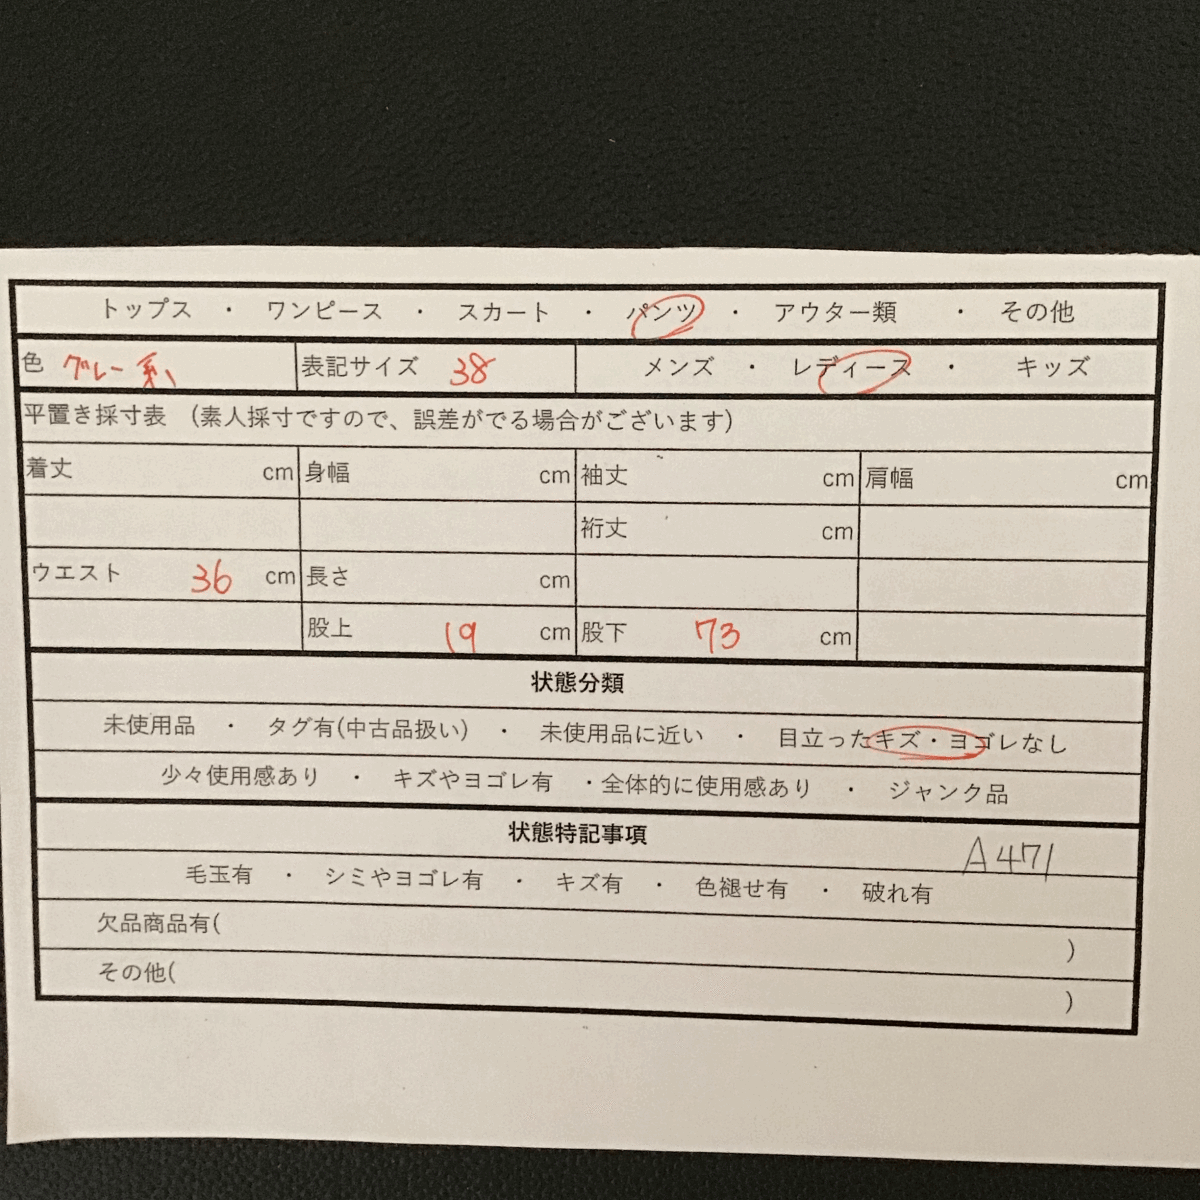 トップス ・ ワンピース ・ スカート ・ パンツ ・ アウター類 ・ その他
色 グレー系 表記サイズ 38 メンズ ・ レディース ・ キッズ
平置き採寸表 （素人採寸ですので、誤差がでる場合がございます）
着丈 cm 身幅 cm 袖丈 cm 肩幅 cm
裄丈 cm
ウエスト 36 cm 長さ cm
股上 19 cm 股下 73 cm
状態分類
未使用品 ・ タグ有(中古品扱い) ・ 未使用品に近い ・ 目立ったキズ・ヨゴレなし
少々使用感あり ・ キズやヨゴレ有 ・全体的に使用感あり ・ ジャンク品
状態特記事項
A471
毛玉有 ・ シミやヨゴレ有 ・ キズ有 ・ 色褪せ有 ・ 破れ有
欠品商品有( )
その他( )